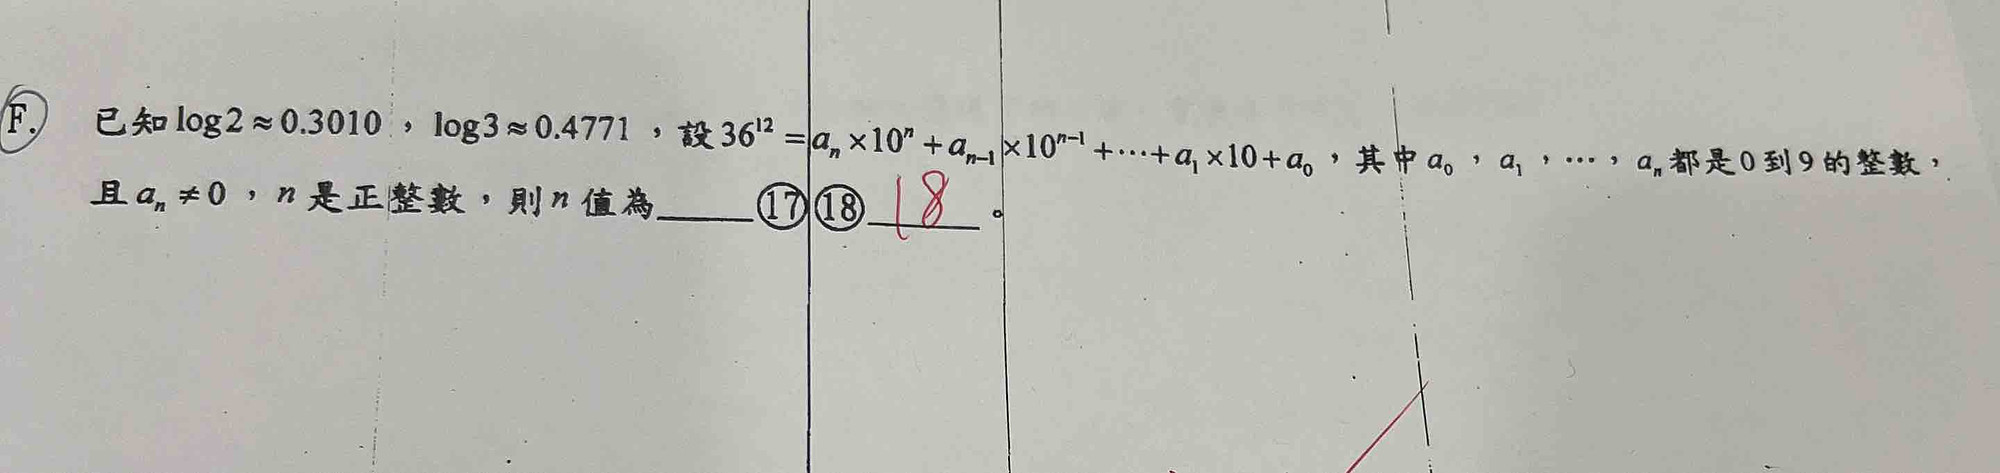 F. 已知 log2≈0.3010，log3≈0.4771，設 36¹² = aₙ×10ⁿ + aₙ₋₁×10ⁿ⁻¹ + ⋯ + a₁×10 + a₀，其中 a₀，a₁，⋯，aₙ 都是 0 到 9 的整數，
且 aₙ ≠ 0，n 是正整數，則 n 值為______⑰⑱ 18 。